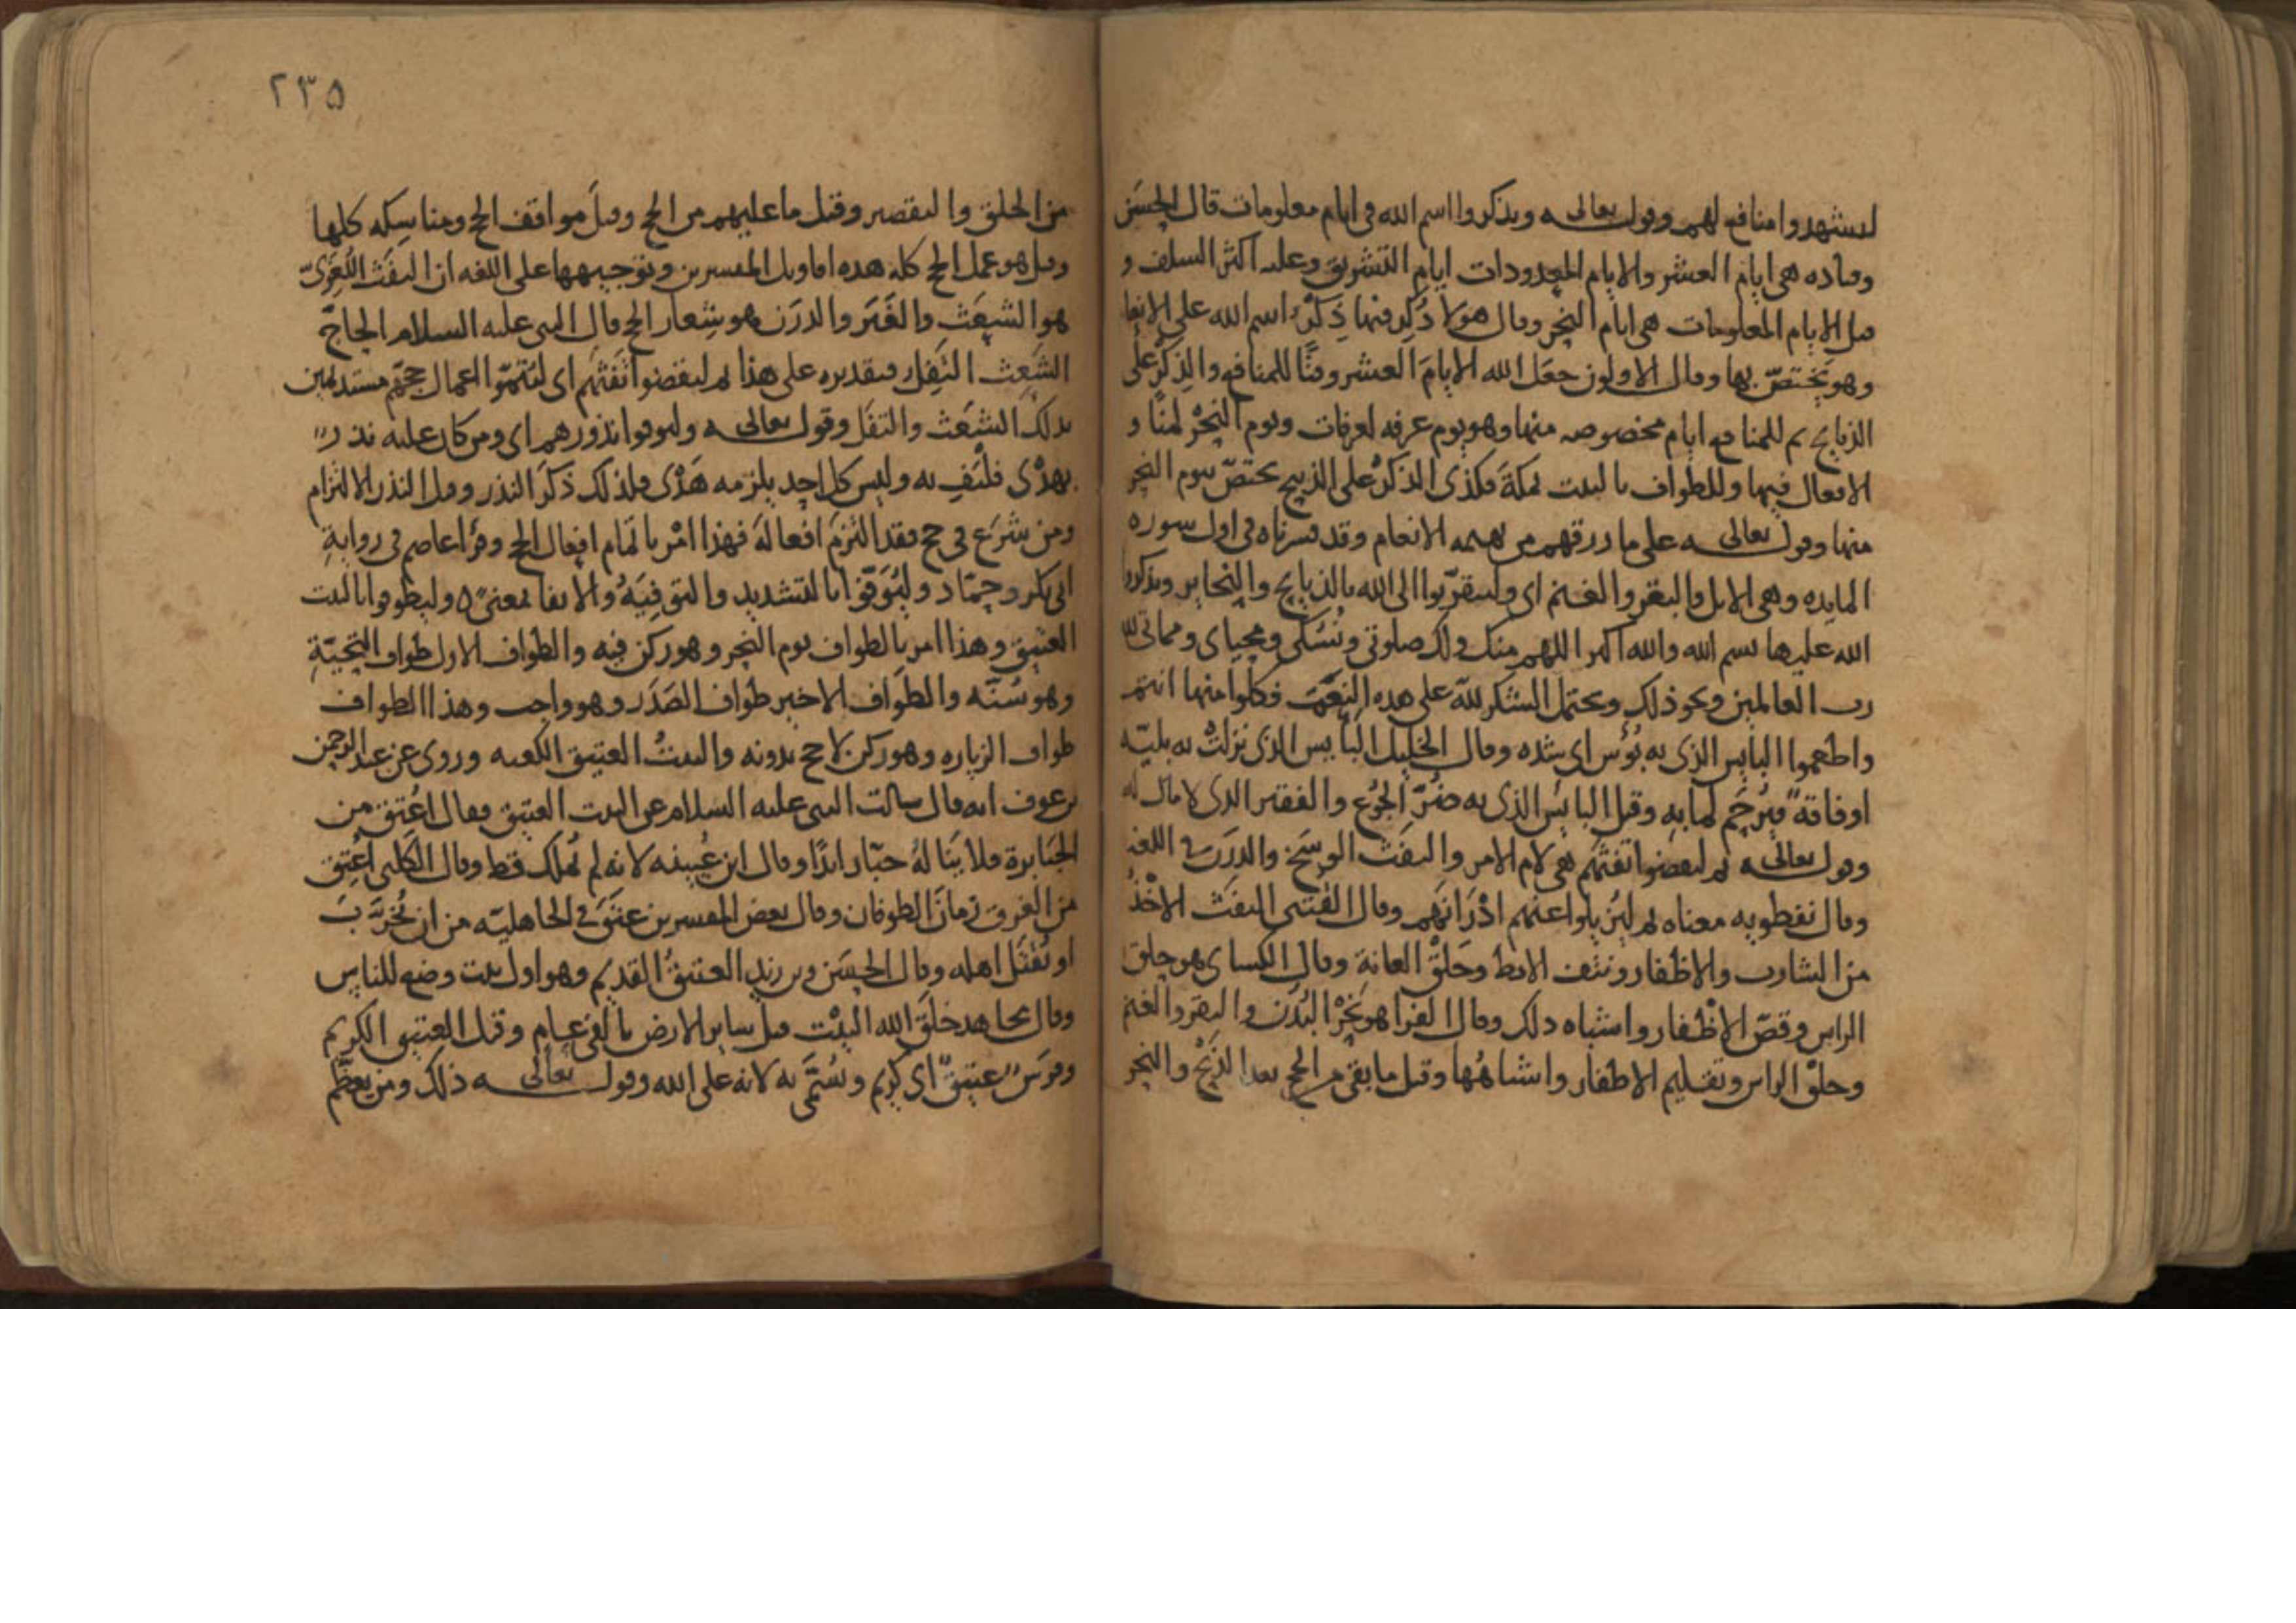 ليشهدوا منافع لهم وقوله تعالى ويذكروا اسم الله في ايام معلومات قال الحسن
وقتاده هي ايام العشر والايام المعدودات ايام التشريق وعليه اكثر السلف و
قيل الايام المعلومات هي ايام النحر وقال هولا ذُكِر فيها ذِكْرُ اسم الله على الانعا
وهو يختصّ بها وقال الاولون جعَل الله الايامَ العشر وقتًا للمنافع والذكر على
الذبايح ثم للمنافع ايام مخصوصه منها وهو يوم عرفه لعرفات ويوم النحر لمنًا و
الافعال فيها وللطواف بالبيت بمكةَ فكذى الذكرُ على الذبيح يختصّ بيوم النحر
منها وقوله تعالى على ما رزقهم من بهيمه الانعام وقد فسرناه في اول سوره
المايده وهي الابل والبقر والغنم اي وليتقرّبوا الى الله بالذبايح والنحاير ويذكروا
الله عليها بسم الله والله اكبر اللهم منك ولك صلوتي ونُسُكي ومحياي ومماتي لله
رب العالمين ونحو ذلك ويحتمل الشكر لله على هذه النِعَمِ فكلوا منها انتم
واطعموا البايس الذي به بُؤْس اي شده وقال الخليل البايس الذي نزلتْ به بليّه
او فاقة فيُرحَم لما به وقيل البايس الذي به ضُرّ الجوع والفقير الذي لا مال له
وقوله تعالى ثم ليقضوا تفثهم هي لام الامر والتفَث الوسَخ والدرَن في اللغه
وقال نفطويه معناه ثم ليُزيلوا عنهم ادْرَانَهم وقال القُتَبي التفَث الاخْذُ
من الشارب والاظفار ونتف الابط وحَلْق العانة وقال الكساي هو حلق
الراس وقصّ الاظفار واشباه ذلك وقال الفرا هو نَحْرُ البُدْن والبقر والغنم
وحلْق الراس وتقليم الاظفار واشباهُها وقيل ما بقي من الحج بعد الذَبْح والنحر
٢٣٥
من الحلق والتقصير وقيل ما عليهم من الحج وقيل مواقف الحج ومناسكه كلها
وقيل هو عمل الحج كله هذه اقاويل المفسرين وتوجيهها على اللغه ان التفَث اللُغَويّ
هو الشَعَث والغَبَر والدرَن هو شِعار الحج قال النبي عليه السلام الحاجّ
الشَعِث التَفِل فتقديره على هذا ثم ليقضوا تفثهم اي ليُتمّوا اعمال حجّهم مستديمين
بذلك الشَعَث والتفَل وقوله تعالى وليوفوا نذورهم اي ومن كان عليه نذرٌ
بهدْي فلْيَفِ به وليس كل احد يلزمه هَدْي فلذلك ذكَرَ النذر وقيل النذر الالتزام
ومن شرَع في حج فقد التزمَ افعالَهُ فهذا امْر باتمام افعال الحج وقرا عاصم في روايةِ
ابي بكر وحمّاد وليُوَفّوا بالتشديد والتوفِيَهُ والايفا بمعنىً وليطوفوا بالبيت
العتيق وهذا امر بالطواف يوم النحر وهو ركن فيه والطواف الاول طواف التحيّةِ
وهو سُنّه والطَواف الاخير طواف الصَدَر وهو واجب وهذا الطواف
طواف الزياره وهو ركن لا حج بدونه والبيتُ العتيق الكعبه وروي عن عبد الرحمن
بن عوف انه قال سالت النبي عليه السلام عن البيت العتيق فقال اُعْتِق من
الجبَابرة فلا يَنالهُ جبّار ابدًا وقال ابن عُيينه لانه لم يُملك قط وقال الكلبي اُعتِق
من الغرق زمانَ الطوفان وقال بعض المفسرين عتَقَ في الجاهليّه من ان يُخرَّبَ
او يُقْتَل اهله وقال الحسَن وبن زيد العتيقُ القديم وهو اول بيت وضع للناس
وقال مجاهد خلَقَ الله البيْت قبل ساير الارض بالفي عام وقيل العتيق الكريم
وفرَسٌ عتيقٌ اي كريم ويُسَمَّى به لانه على الله وقوله تعالى ذلك ومن يعظّم